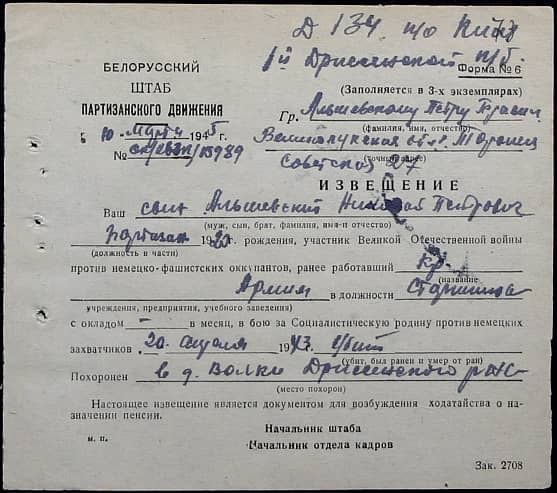 Д 134 п/о
1й Дриссенской п/б.
Форма № 6
БЕЛОРУССКИЙ
ШТАБ
ПАРТИЗАНСКОГО ДВИЖЕНИЯ
10 марта 1945 г.
№ 15989
(Заполняется в 3-х экземплярах)
Гр. Альшевскому Петру
(фамилия, имя, отчество)
Великолукская обл. Торопец
(точный адрес)
Советская 27
ИЗВЕЩЕНИЕ
Ваш сын Альшевский Николай Петрович
(муж, сын, брат, фамилия, имя-и отчество)
партизан 192 рождения, участник Великой Отечественной войны
(должность в части)
против немецко-фашистских оккупантов, ранее работавший кр.
(название
Армия в должности старшина
учреждения, предприятия, учебного заведения)
с окладом — в месяц, в бою за Социалистическую родину против немецких
захватчиков 20 апреля 1943 убит
(убит, был ранен и умер от ран)
Похоронен в д. Волки Дриссенского р-на
(место похорон)
Настоящее извещение является документом для возбуждения ходатайства о на-
значении пенсии.
Начальник штаба
м. п.
Начальник отдела кадров
Зак. 2708